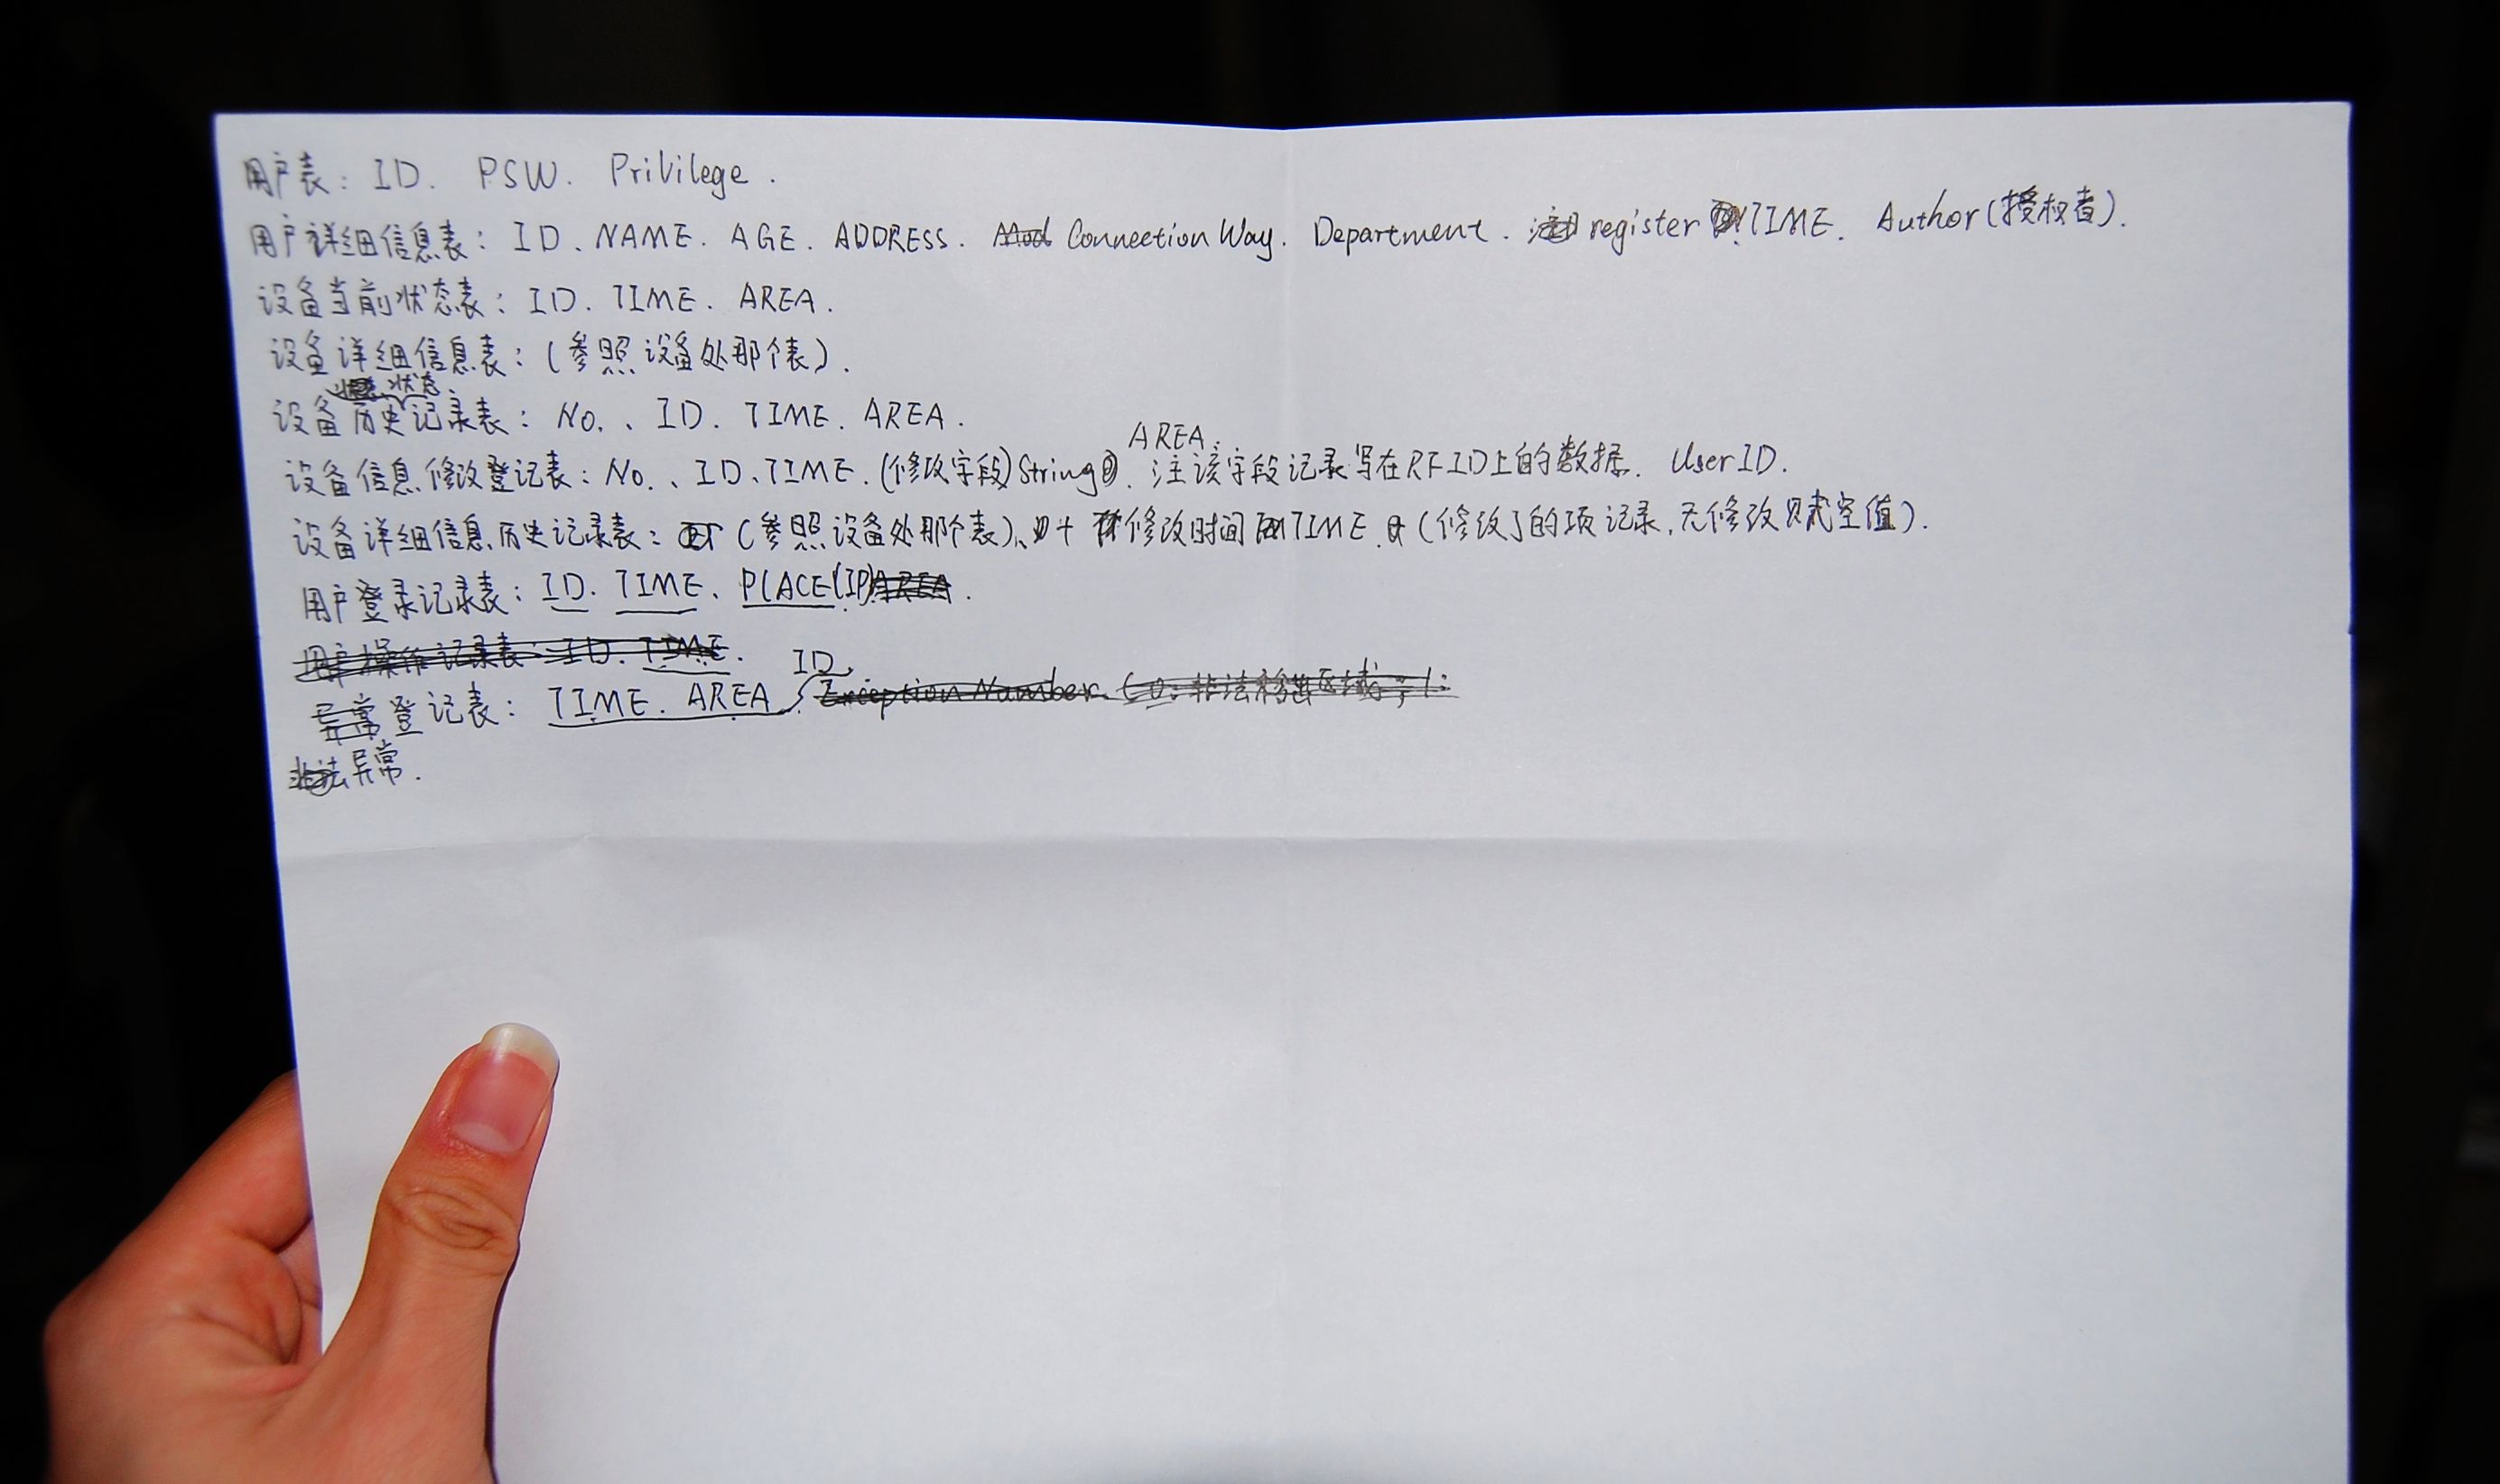 用户表：ID. PSW. Privilege.
用户详细信息表：ID、NAME. AGE. ADDRESS. Connection Way. Department. register TIME. Author(授权者).
设备当前状态表：ID. TIME. AREA.
设备详细信息表：(参照设备处那个表).
状态
设备历史记录表：No.、ID. TIME. AREA.
AREA.
设备信息修改登记表：No.、ID、TIME. (修改字段)String. 注该字段记录写在RFID上的数据. UserID.
设备详细信息历史记录表：(参照设备处那个表)、+ 修改时间 TIME. (修改了的项记录,无修改赋空值).
用户登录记录表：ID. TIME、PLACE(IP).
用户操作记录表：ID. TIME.
ID.
异常登记表：TIME. AREA. Exception Number. (0：非法移出区域；1：
非法异常.